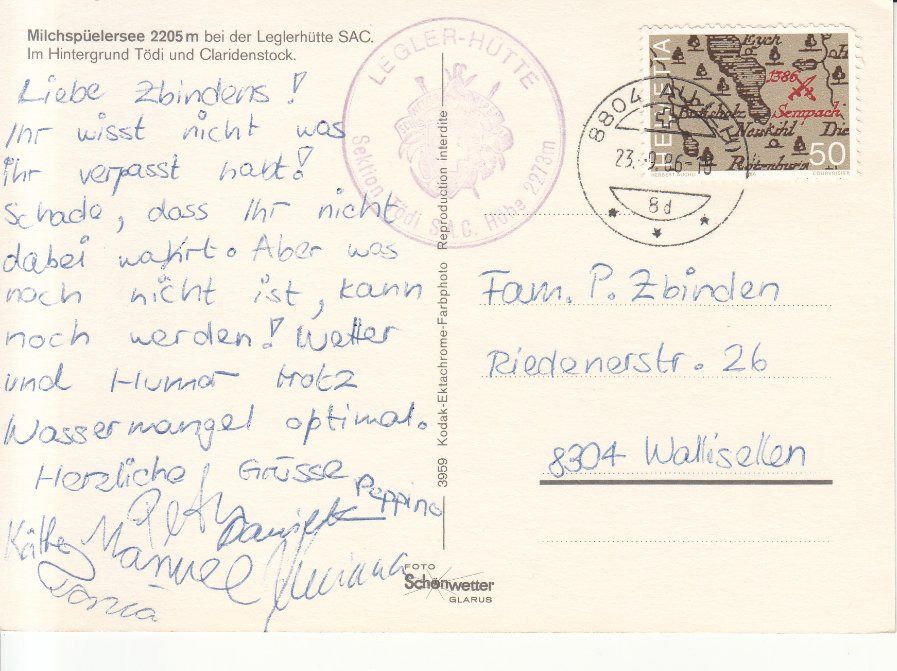 Milchspüelersee 2205 m bei der Leglerhütte SAC.
Im Hintergrund Tödi und Claridenstock.
Liebe Zbindens!
Ihr wisst nicht was
ihr verpasst habt!
Schade, dass Ihr nicht
dabei wahrt. Aber was
noch nicht ist, kann
noch werden! Wetter
und Humor trotz
Wassermangel optimal.
Herzliche Grüsse
Peppino
Daniela
Käthe
Manuel
LEGLER-HÜTTE
Sektion Tödi S.A.C. Höhe 2273m
3959 Kodak-Ektachrome-Farbphoto Reproduction interdite
FOTO
Schönwetter
GLARUS
HELVETIA
1386
Sempach
50
COURVOISIER
8804
23.-9.86-18
8d
Fam. P. Zbinden
Riedenerstr. 26
8304 Wallisellen